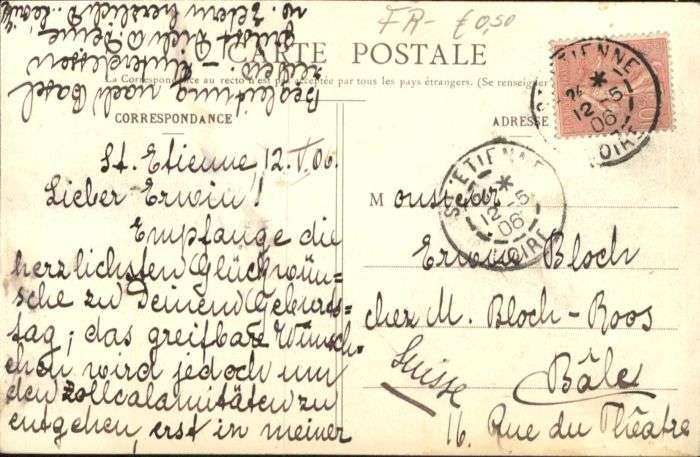 FR- € 0,50
CARTE POSTALE
La Correspondance au recto n'est pas acceptée par tous les pays étrangers. (Se renseigner
CORRESPONDANCE
ADRESSE
St. Etienne 12.V.06.
Lieber Erwin!
Empfange die
herzlichsten Glückwün-
sche zu Deinem Geburts-
tag; das greifbare Wünsch-
chen wird jedoch um
den Zollcalamitäten zu
entgehen, erst in meiner
Begleitung nach Basel
reisen. Unterdessen
grüsst Dich & Deine
w. Eltern herzlich
Monsieur
Erwin Bloch
chez M. Bloch-Roos
Bâle
Suisse
16. Rue du Théatre
ST ETIENNE
12-5
06
LOIRE
ST ETIENNE
12-5
06
LOIRE
10